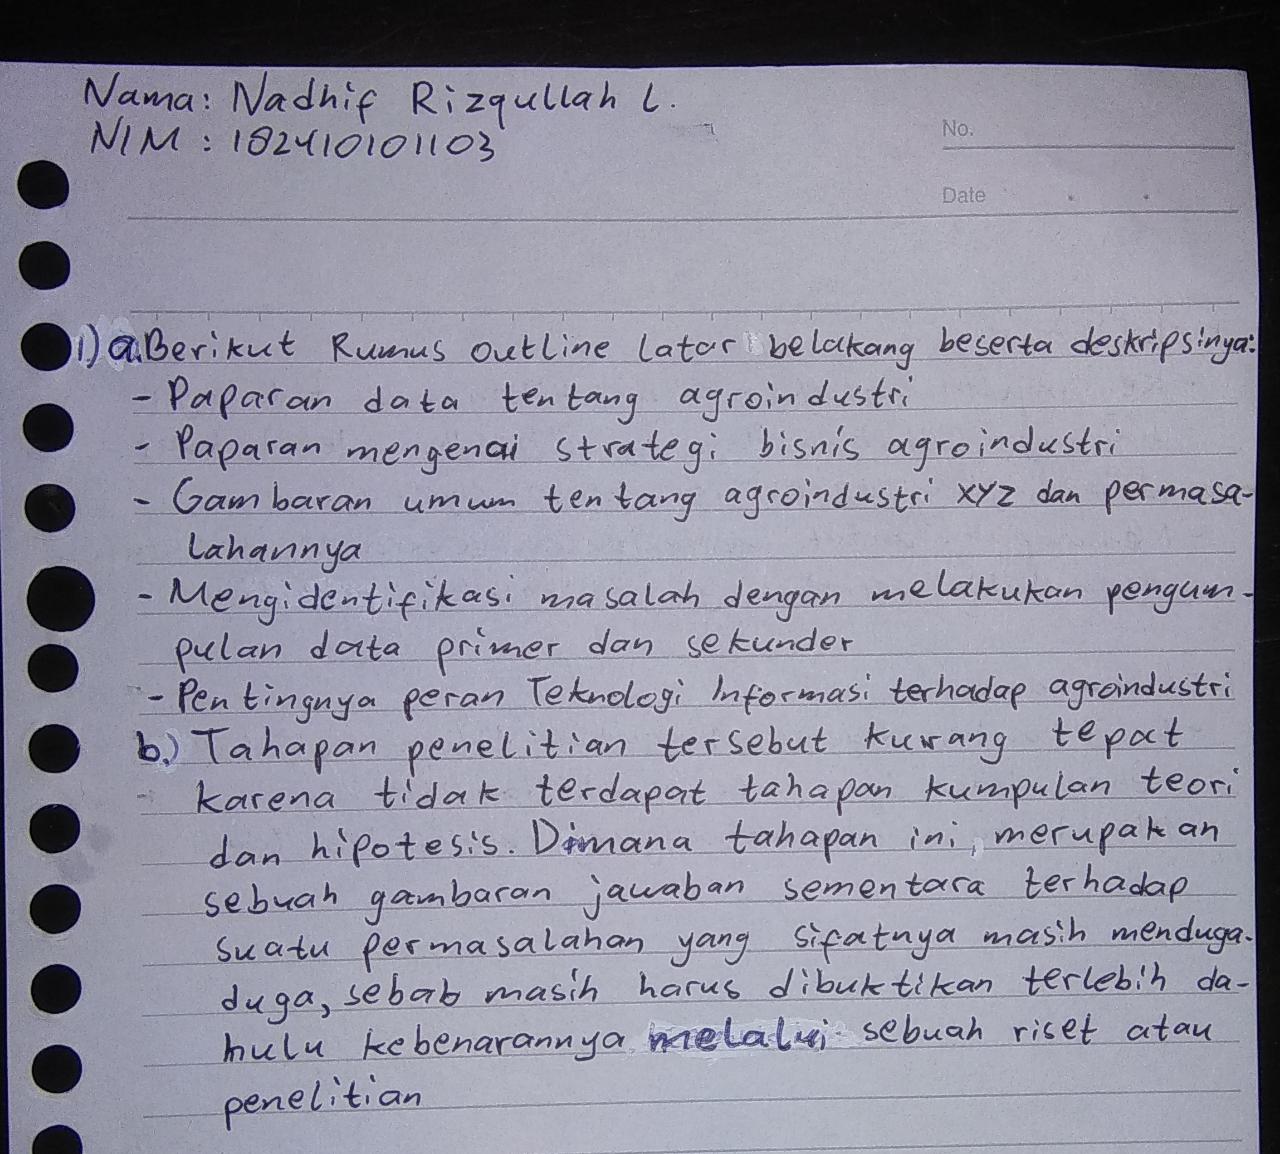 Nama: Nadhif Rizqullah L.
NIM : 182410101103
No.
Date
1) a. Berikut Rumus outline latar belakang beserta deskripsinya:
- Paparan data tentang agroindustri
- Paparan mengenai strategi bisnis agroindustri
- Gambaran umum tentang agroindustri XYZ dan permasa-
lahannya
- Mengidentifikasi masalah dengan melakukan pengum-
pulan data primer dan sekunder
- Pentingnya peran Teknologi Informasi terhadap agroindustri
b.) Tahapan penelitian tersebut kurang tepat
karena tidak terdapat tahapan kumpulan teori
dan hipotesis. Dimana tahapan ini, merupakan
sebuah gambaran jawaban sementara terhadap
suatu permasalahan yang sifatnya masih menduga-
duga, sebab masih harus dibuktikan terlebih da-
hulu kebenarannya melalui sebuah riset atau
penelitian